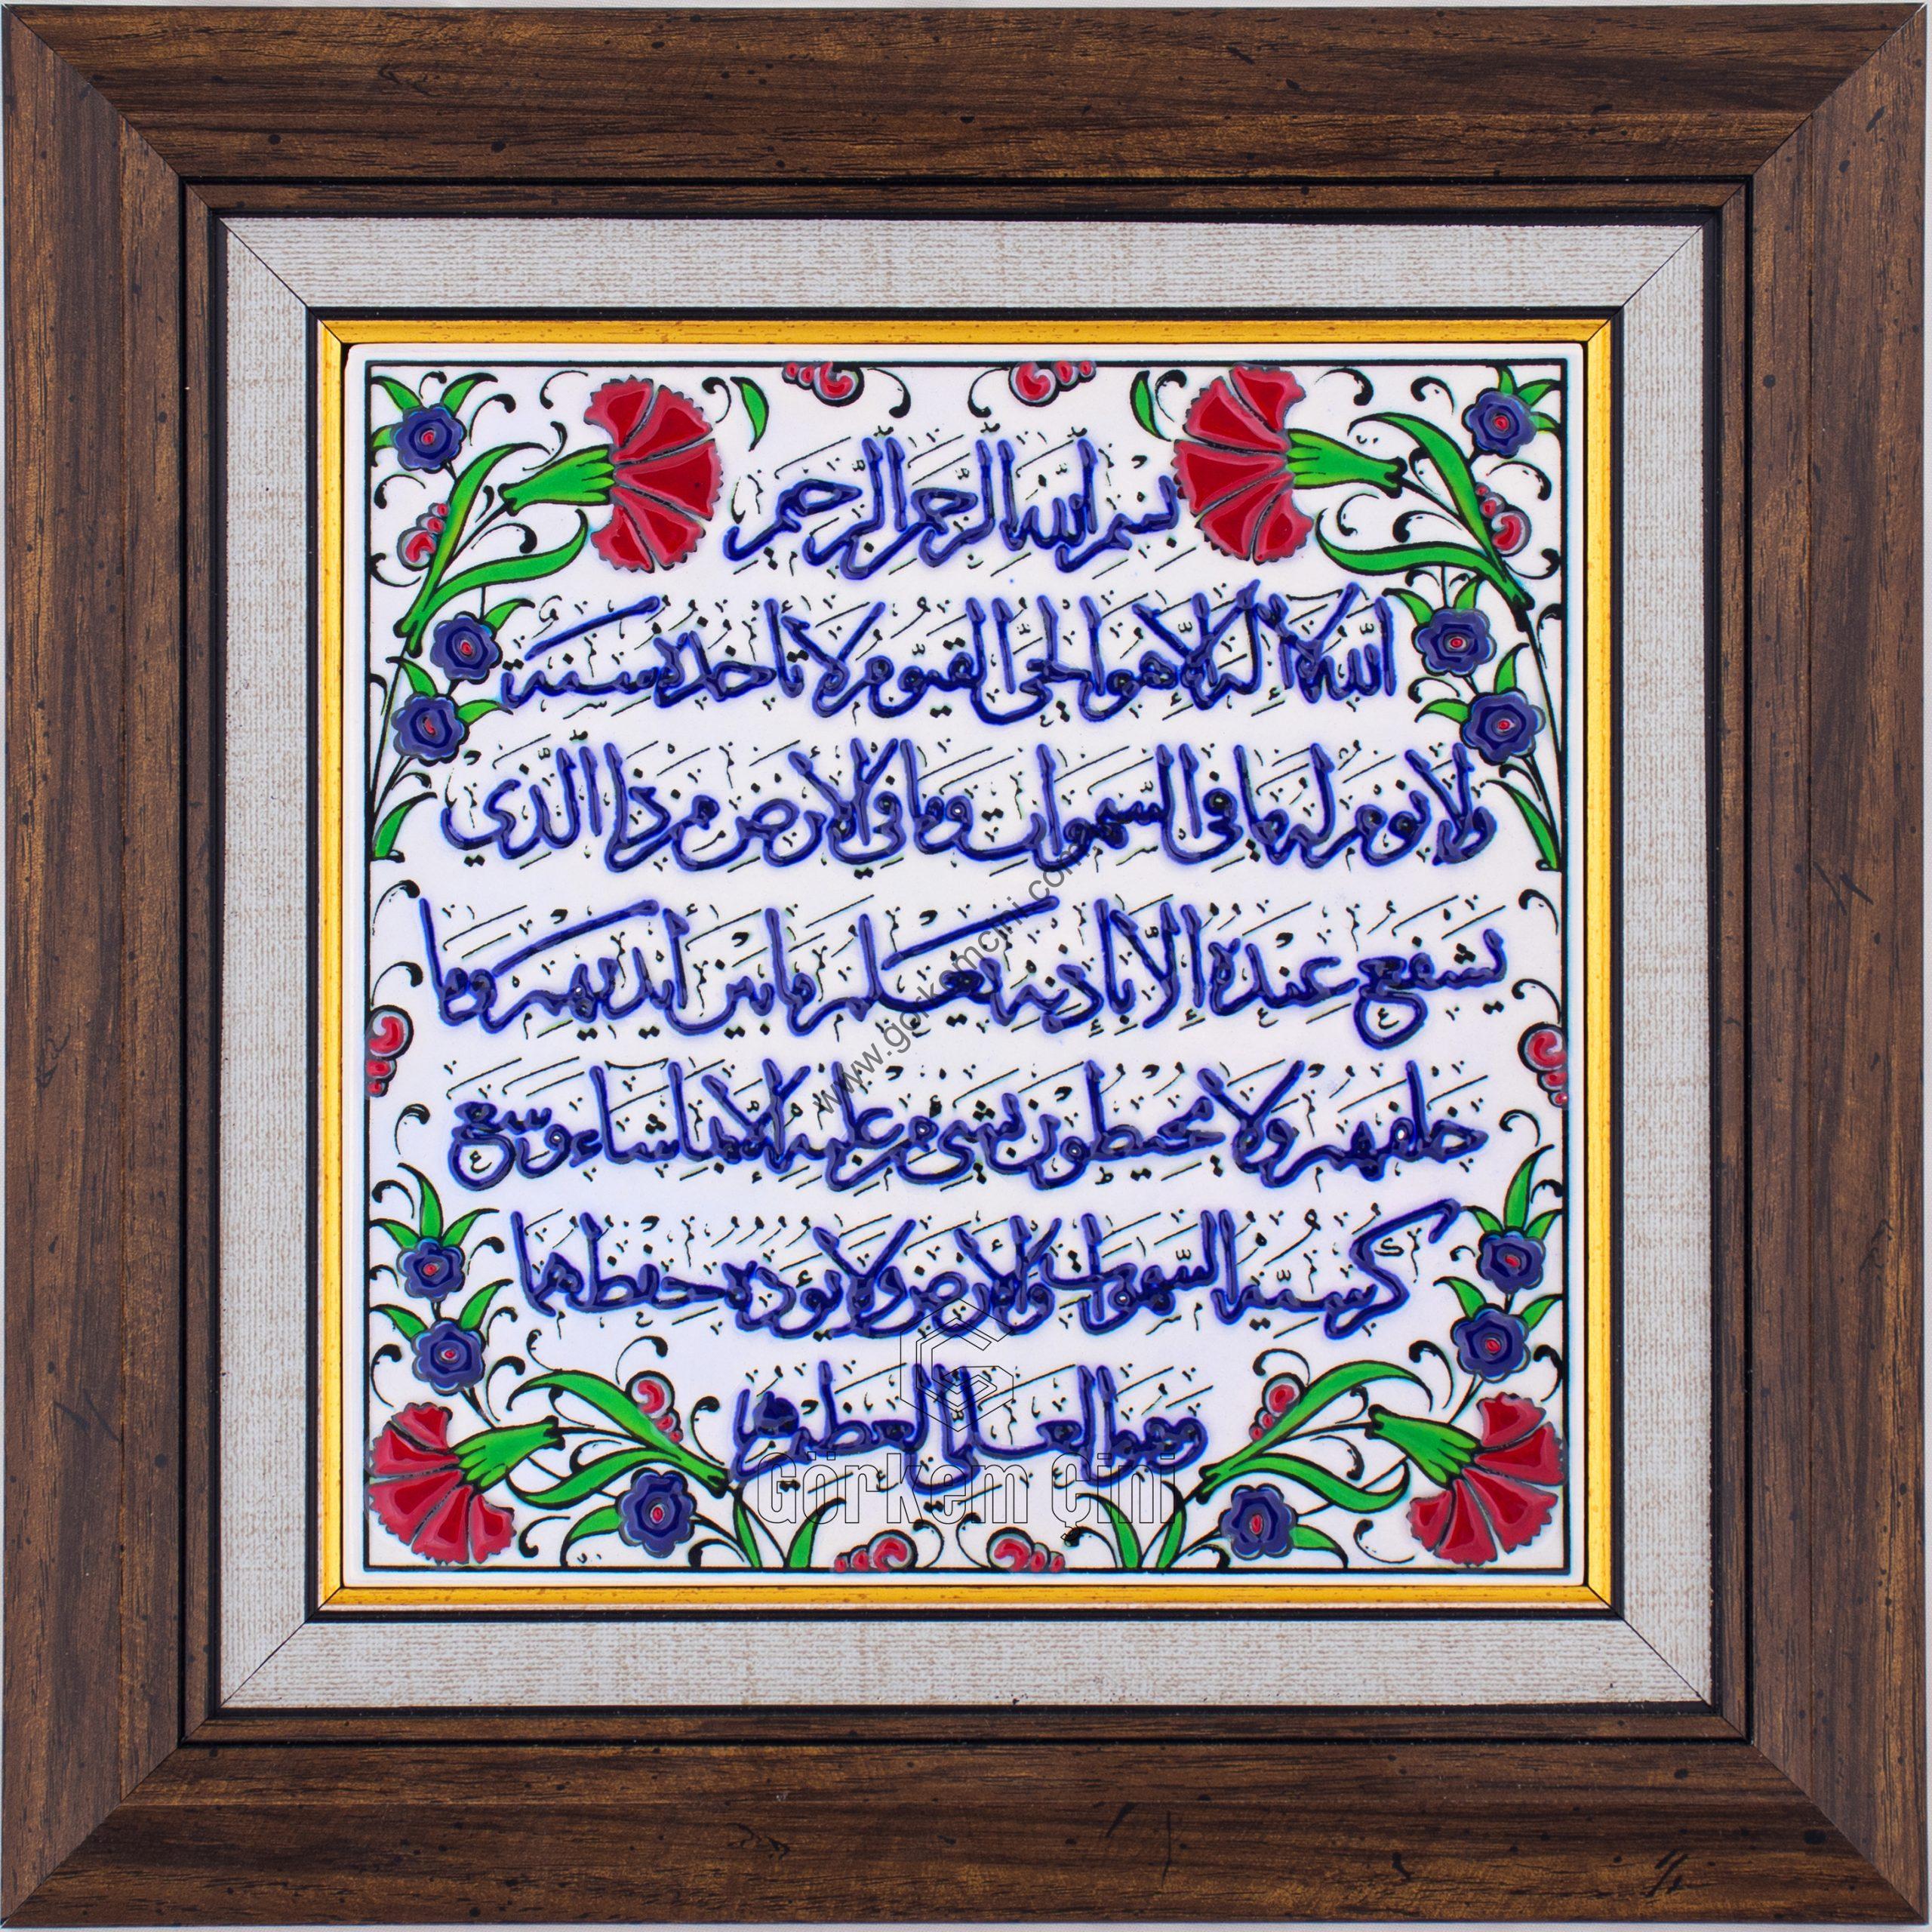 بسم الله الرحمن الرحيم
الله لا إله إلا هو الحي القيوم لا تأخذه سنة
ولا نوم له ما في السموات وما في الأرض من ذا الذي
يشفع عنده إلا بإذنه يعلم ما بين أيديهم وما
خلفهم ولا يحيطون بشيء من علمه إلا بما شاء وسع
كرسيه السموات والأرض ولا يؤده حفظهما
وهو العلي العظيم
www.gorkemcini.com
Görkem Çini